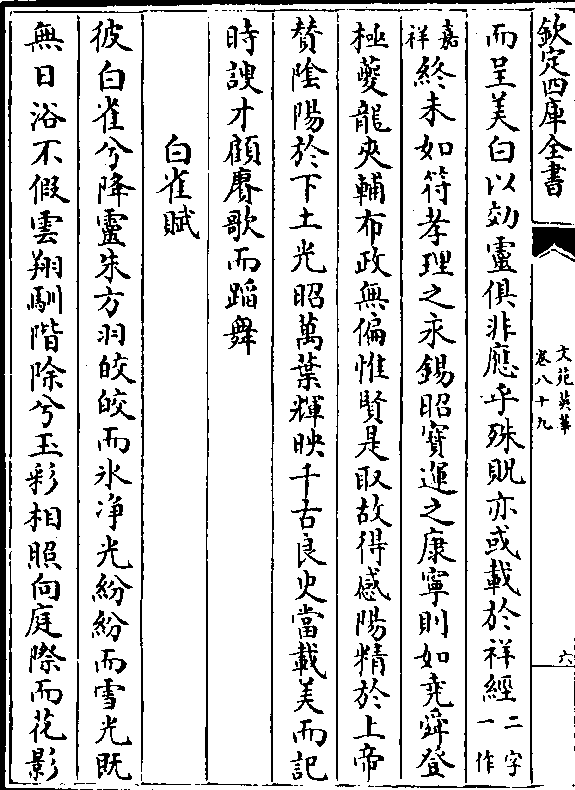 欽定四庫全書
文苑英華
卷八十九
六
而呈美白以効靈俱非應乎殊貺亦或載於祥經二字一作
嘉祥終未如符孝理之永錫昭寶運之康寧則如堯舜登
極夔龍夾輔布政無偏惟賢是取故得感陽精於上帝
贊陰陽於下土光昭萬葉輝映千古良史當載美而記
時諛才願賡歌而蹈舞
白雀賦
彼白雀兮降靈朱方羽皎皎而氷净光紛紛而雪光既
無日浴不假雲翔馴階除兮玉彩相照向庭際而花影